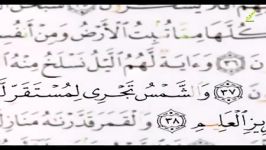 كُلَّهَا مِمَّا تُنۢبِتُ ٱلْأَرْضُ وَمِنْ أَنفُسِ
ونَ ٣٦ وَءَايَةٌ لَّهُمُ ٱلَّيْلُ نَسْلَخُ مِنْهُ
نَ ٣٧ وَٱلشَّمْسُ تَجْرِى لِمُسْتَقَرٍّ لَّ
يزِ ٱلْعَلِيمِ ٣٨ وَٱلْقَمَرَ قَدَّرْنَٰهُ مَنَازِلَ